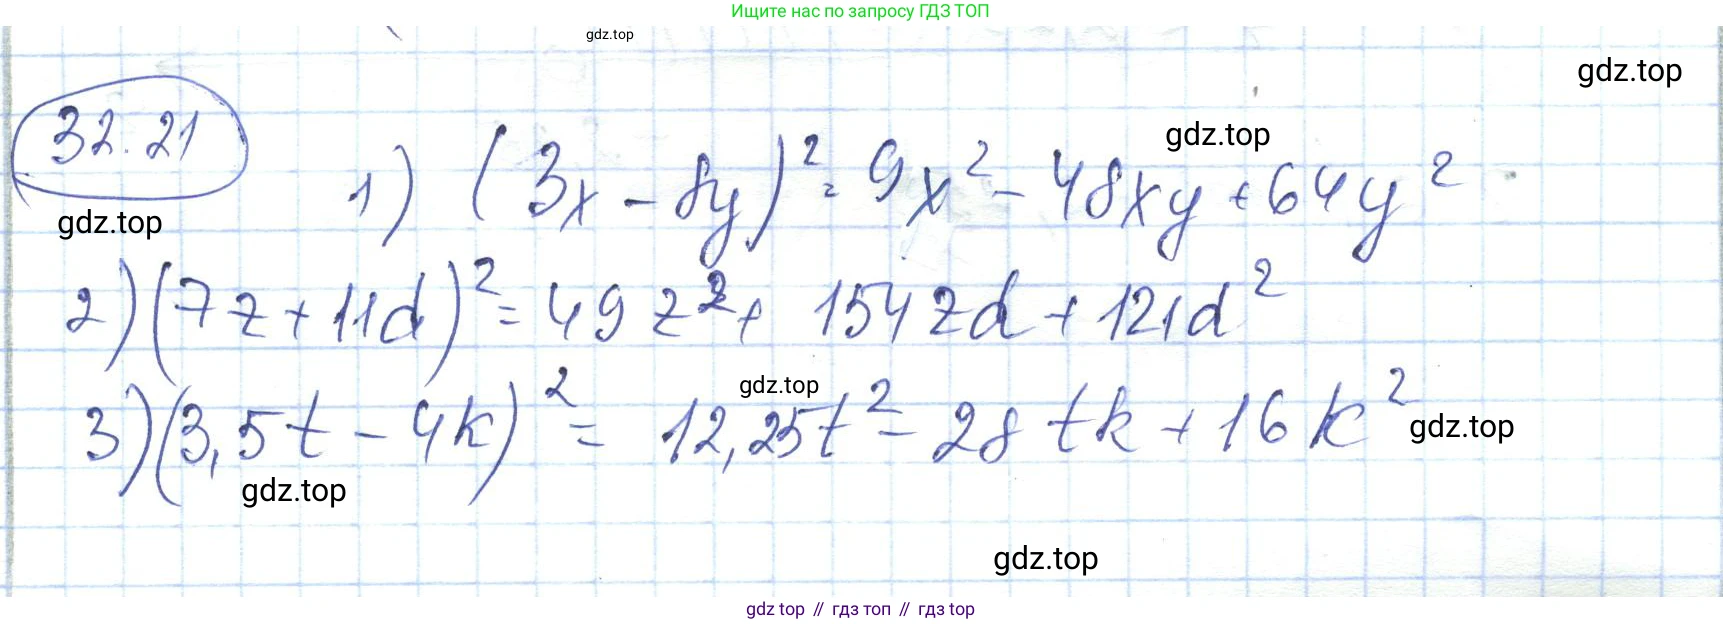 Ищите нас по запросу ГДЗ ТОП
gdz.top
gdz.top
32.21
gdz.top
1) (3x - 8y)² = 9x² - 48xy + 64y²
gdz.top
2) (7z + 11d)² = 49z² + 154zd + 121d²
gdz.top
3) (3,5t - 4k)² = 12,25t² - 28tk + 16k²
gdz.top
gdz.top
gdz.top
gdz top // гдз топ // gdz top